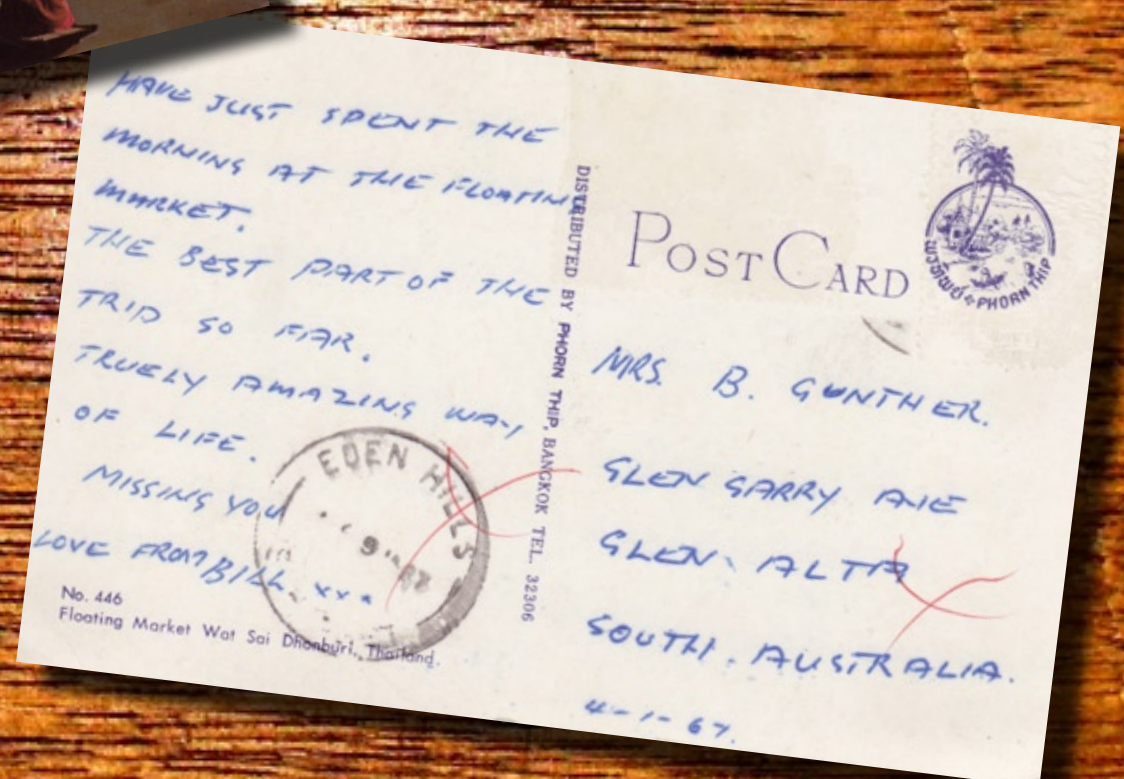 HAVE JUST SPENT THE
MORNING AT THE FLOATING
MARKET.
THE BEST PART OF THE
TRIP SO FAR.
TRUELY AMAZING WAY
OF LIFE.
MISSING YOU
LOVE FROM BILL xxx
No. 446
Floating Market Wat Sai Dhonburi, Thailand.
EDEN HILLS
9
DISTRIBUTED BY PHORN THIP, BANGKOK TEL. 32306
POST CARD
พรทิพย์ PHORN THIP
MRS. B. GUNTHER.
GLEN GARRY AVE
GLEN. ALTA
SOUTH. AUSTRALIA.
4-1-67.